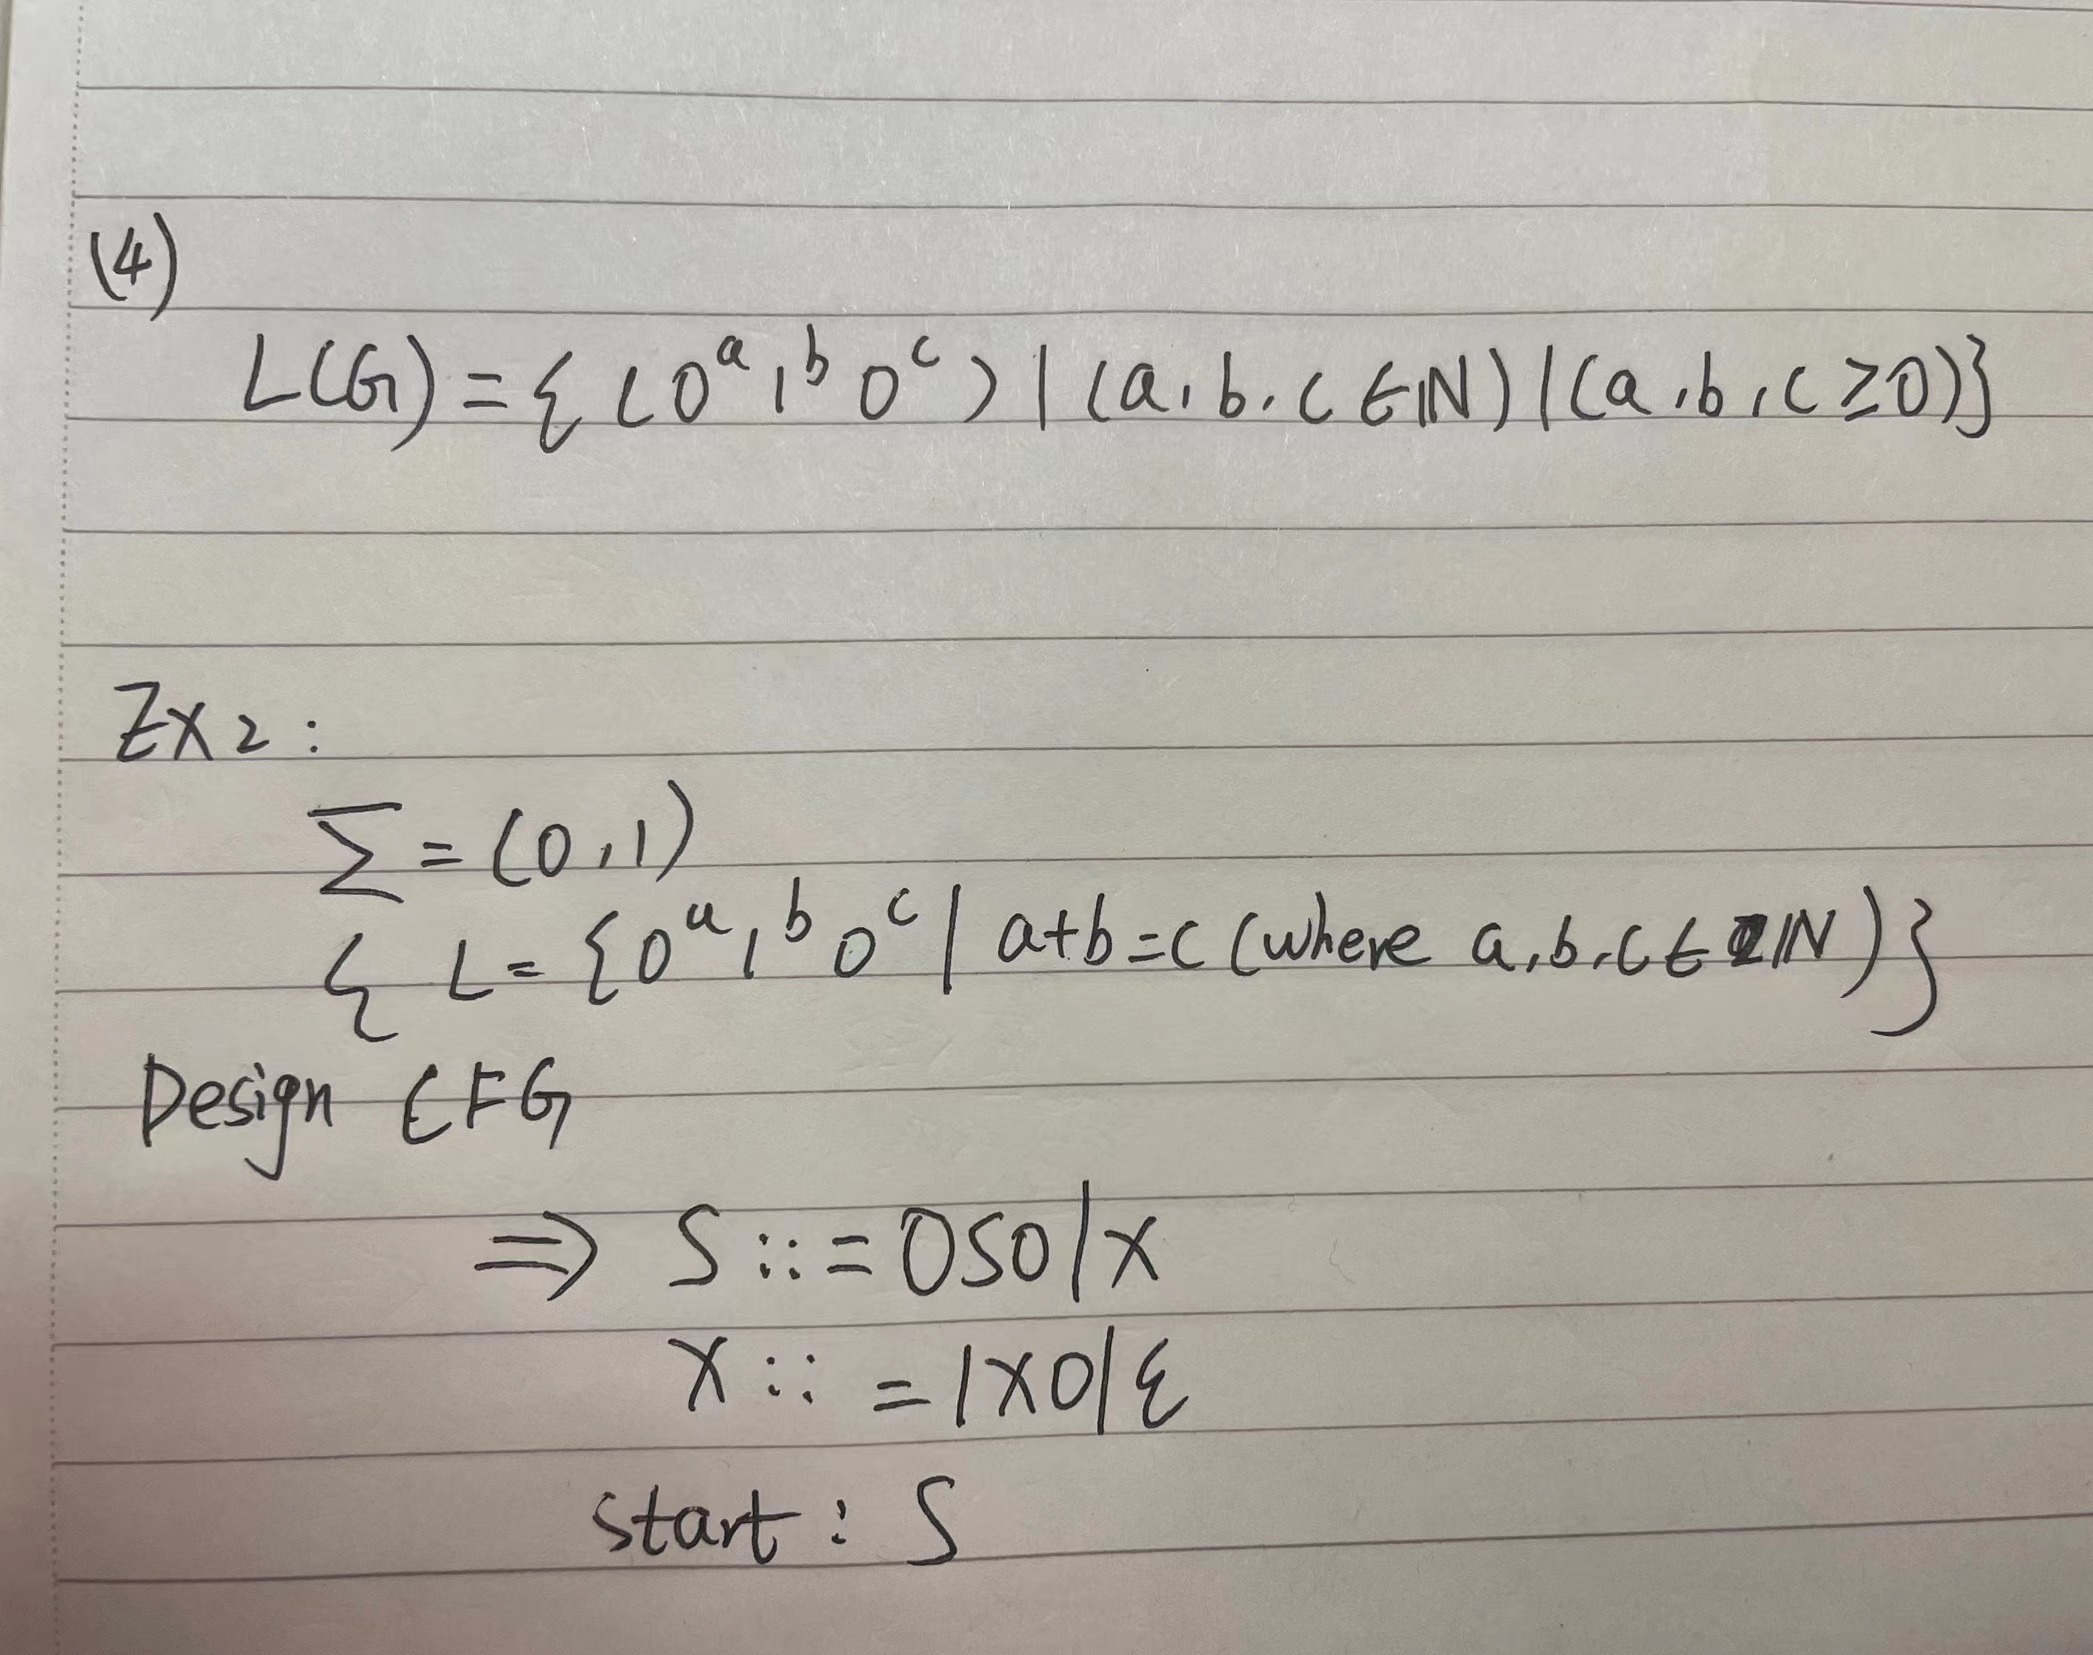 (4)
L(G) = { (0^a 1^b 0^c) | (a, b, c ∈ ℕ) | (a, b, c ≥ 0)}
Ex 2:
Σ = (0, 1)
{ L = {0^a 1^b 0^c | a+b=c (where a, b, c ∈ ℕ)}
Design CFG
⇒ S ::= 0S0 | X
X ::= 1X0 | ε
start : S